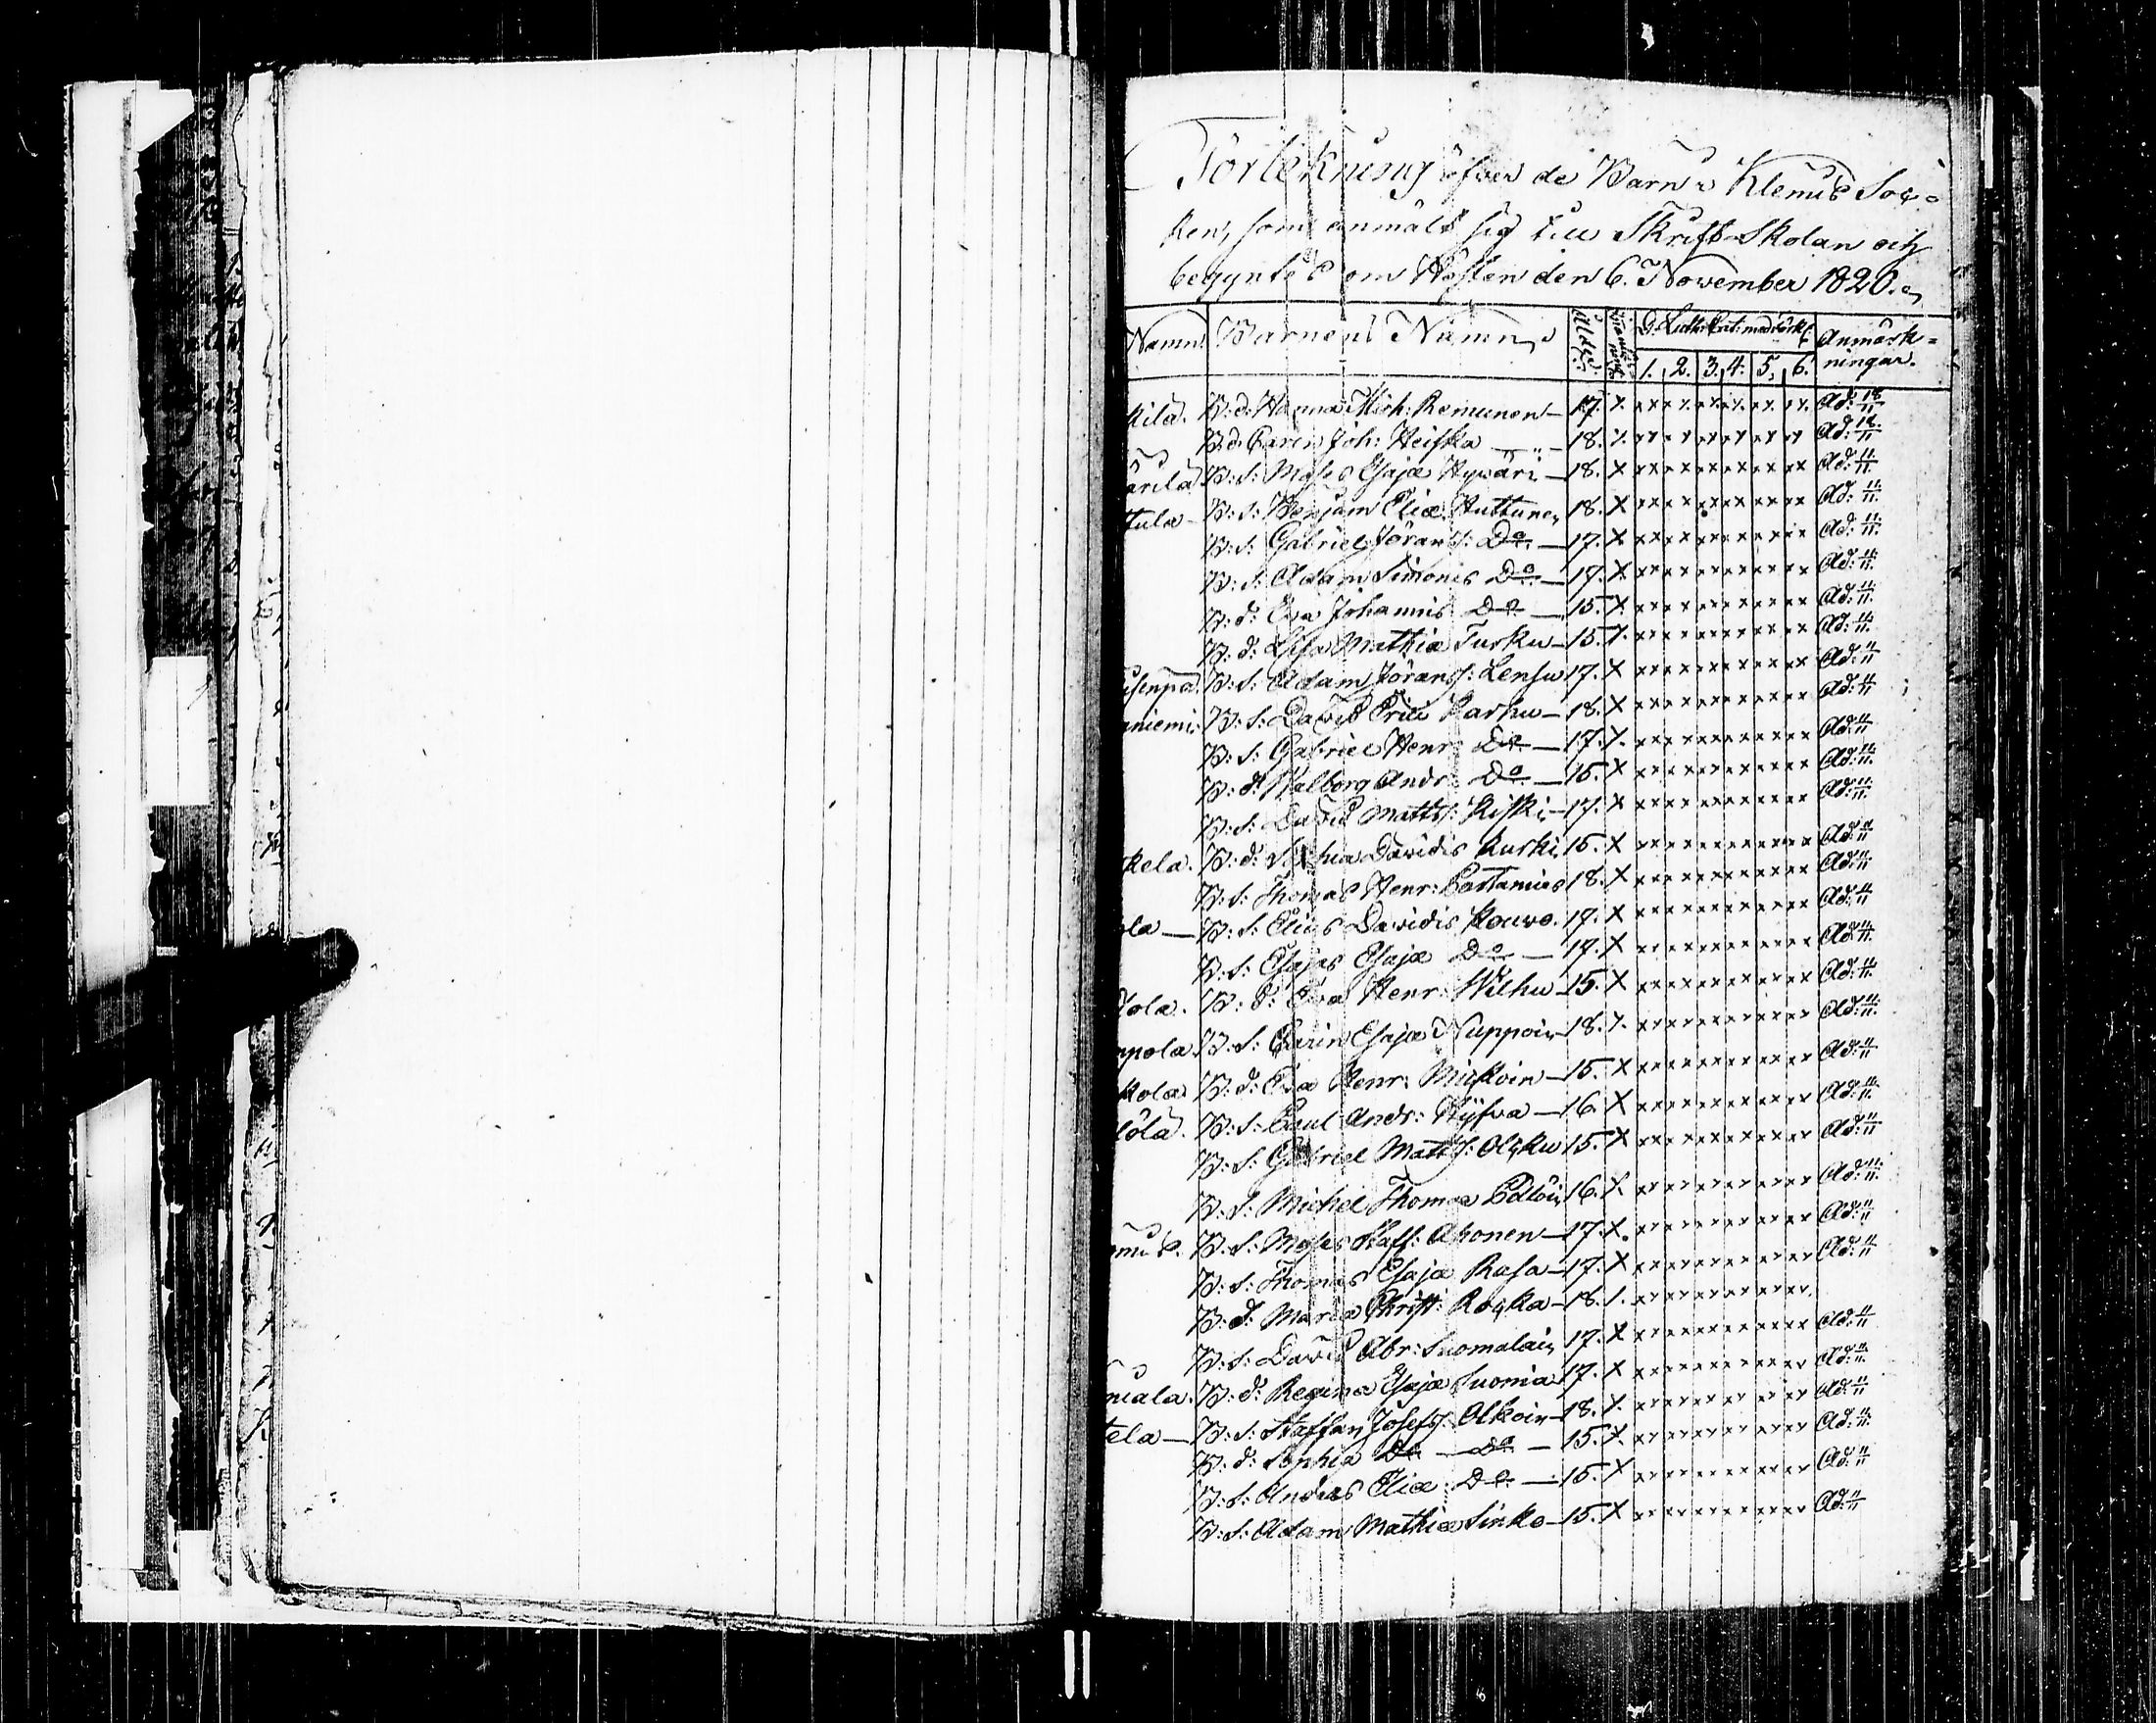 Förtekning öfver de Barn i Klemis Soc=
ken, som anmält sig till Skrift-Skolan och
begyntes om Hösten den 6. November 1820.
Namn. Barnens Namn Ålder D. Luth: Cat: med förkl: Anmärk=
1. 2. 3. 4. 5. 6. ningar.
kila. B: d: Hanna Mich: Remunen — 17. x xx x x x x x x x x Ad: 18/11
B: d: Carin Joh: Heiska — 18. x xx x x xx x x x x Ad: 18/11
ärilä B: S: Moses Esajæ Hyväri — 18. x xx x x xx x x x x x Ad: 11/11
tula — B: S: Benjam Eliæ Huttunen 18. x xx x x xx x x x x x Ad: 11/11
B: S: Gabriel Jörans: Do — 17. x xx x x xx x x x x x Ad: 11/11
B: S: Adam Simonis Do — 17. x xx x x xx x x x x x Ad: 11/11
B: d: Eva Johannis Do — 15. x xx x x xx x x x x x Ad: 11/11
B: d: Lisa Mathiæ Turku — 15. x xx x x xx x x x x x Ad: 11/11
B: S: Adam Jörans: Lensu 17. x xx x x xx x x x x x Ad: 11/11
niemi. B: S: David Erici Karhu — 18. x xx x x xx x x x x x Ad: 11/11
B: S: Gabriel Henr: Do — 17. x xx x x xx x x x x x Ad: 11/11
B: d: Walborg Andr: Do — 15. x xx x x xx x x x x x Ad: 11/11
B: S: David Matts: Kiski — 17. x xx x x xx x x x x x Ad: 11/11
kela. B: d: Sophia Davidis Kurki 15. x xx x x xx x x x x x Ad: 11/11
B: S: Thomas Henr: Partanies 18. x xx x x xx x x x x x Ad: 11/11
ola — B: S: Elias Davidis Kouvo. 17. x xx x x xx x x x x x Ad: 11/11
B: S: Esajas Esajæ Do — 17. x xx x x xx x x x x x Ad: 11/11
ola. B: d: Eva Henr: Wilhu 15. x xx x x xx x x x x x Ad: 11/11
ppola. B: S: Carin Esajæ Nuppoin 18. x xx x x xx x x x x x Ad: 11/11
kola B: d: Eva Henr: Mickoin — 15. x xx x x xx x x x x x Ad: 11/11
ölä. B: S: Paul Andr: Hyfva — 16. x xx x x xx x x x x x Ad: 11/11
B: S: Gabriel Matts: Olcku 15. x xx x x xx x x x x x Ad: 11/11
B: S: Michel Thomæ 16. x xx x x xx x x x x x Ad: 11/11
mis. B: S: Moses Staff: Ahonen — 17. x xx x x xx x x x x x Ad: 11/11
B: S: Thomas Esajæ Rasa — 17. x xx x x xx x x x x x Ad: 11/11
B: d: Maria Christ: Rocka — 18. x xx x x xx x x x x x
B: S: David Abr: Suomalain 17. x xx x x xx x x x x x Ad: 11/11
mala. B: d: Regina Esajæ Suoma 17. x xx x x xx x x x x x Ad: 11/11
tela — B: S: Staffan Josefs: Olkoin — 18. x xx x x xx x x x x x Ad: 11/11
B: d: Sophia Do — Do — 15. x xx x x xx x x x x x Ad: 11/11
B: S: Andreas Eliæ Do — 15. x xx x x xx x x x x x Ad: 11/11
B: S: Adam Mathiæ Sinko — 15. x xx x x xx x x x x x Ad: 11/11